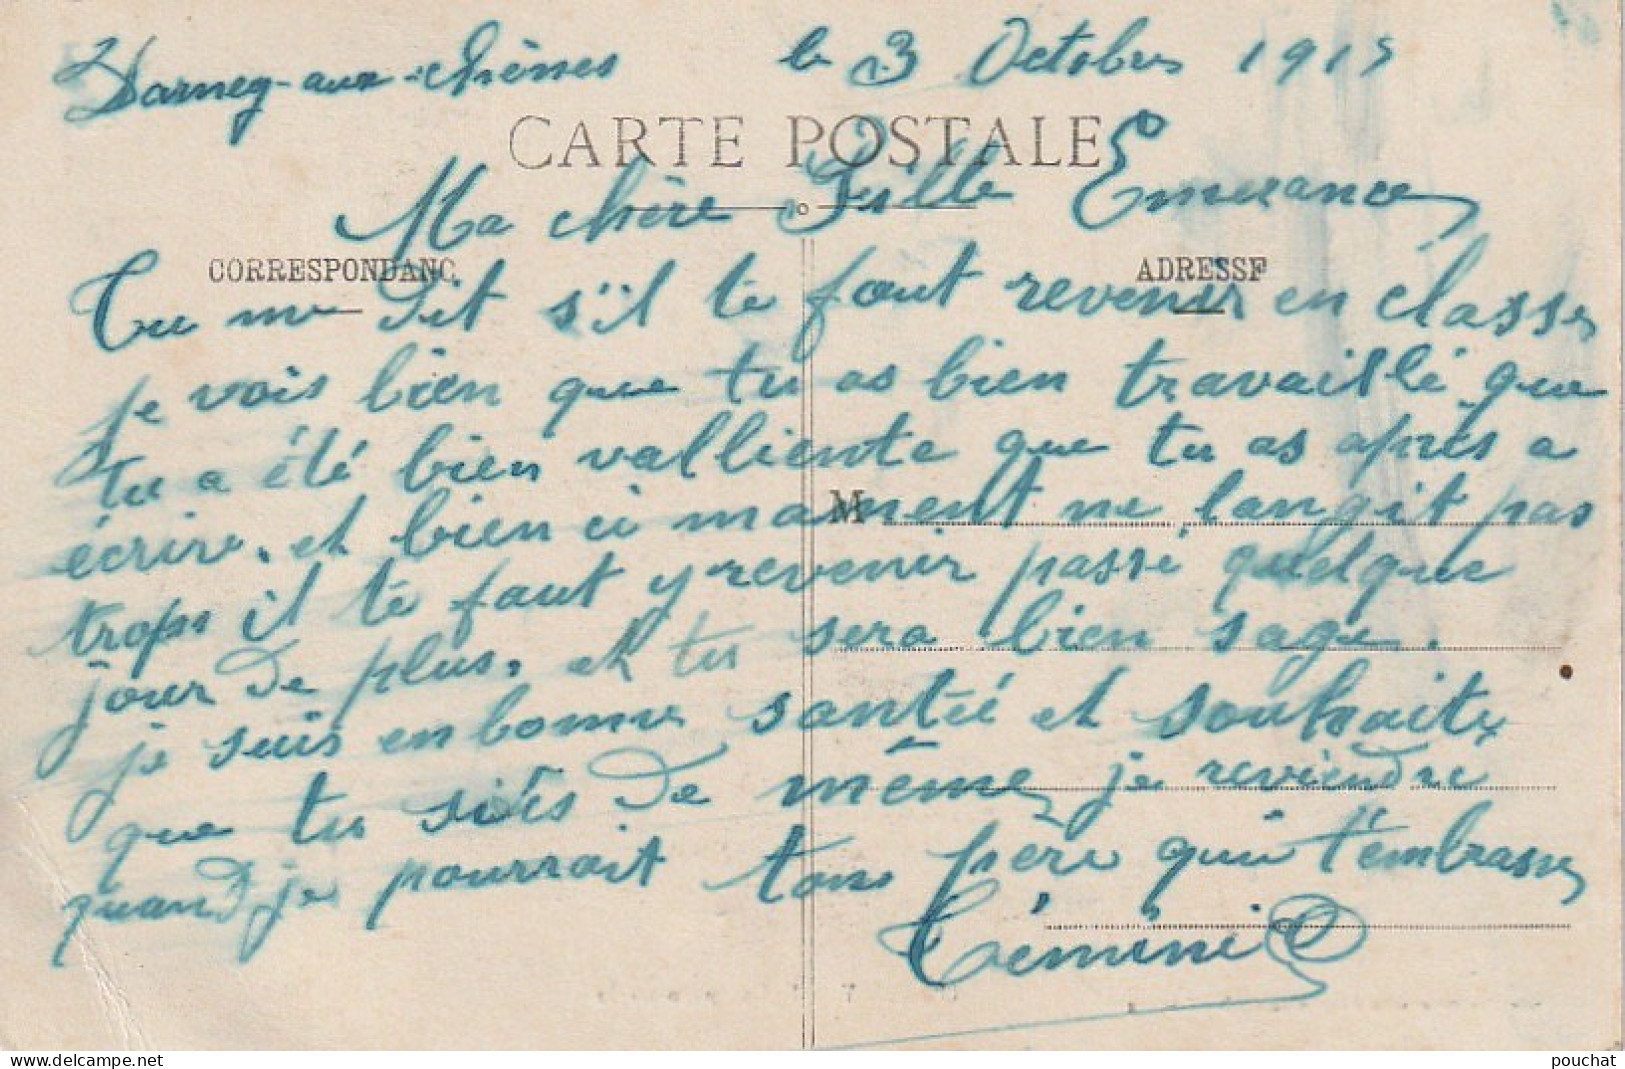 Darney-aux-chênes le 3 Octobre 1915
CARTE POSTALE
Ma chère fille Emerance
CORRESPONDANC
ADRESSE
Tu me dit s'il te faut revenir en classe
je vois bien que tu as bien travaillé que
tu a été bien valliente que tu as après a
écrire, et bien ci mament ne langit pas
M
trops il te faut y revenir passé quelque
jour de plus, et tu sera bien sage.
je suis en bonne santéé et souhaite
que tu siès de même, je reviendre
quand je pourrait ton père qui t'embrasse
pouchat
delcampe.net